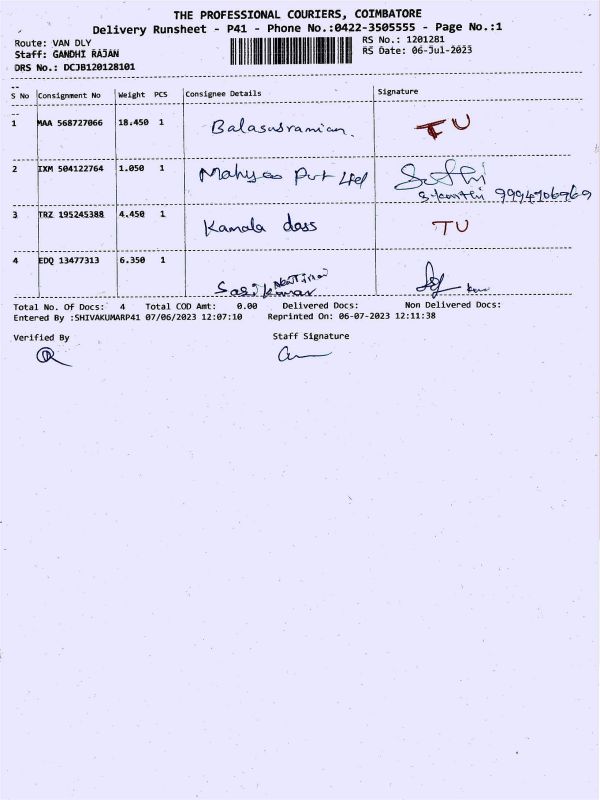 THE PROFESSIONAL COURIERS, COIMBATORE
Delivery Runsheet - P41 - Phone No.:0422-3505555 - Page No.:1
Route: VAN DLY RS No.: 1201281
Staff: GANDHI RAJAN RS Date: 06-Jul-2023
DRS No.: DCJB120128101
S No Consignment No Weight PCS Consignee Details Signature
1 MAA 568727066 18.450 1 Balasusramian. TU
2 IXM 504122764 1.050 1 Mahyco Pvt Ltd
9994706969
3 TRZ 195245388 4.450 1 Kamala dass TU
4 EDQ 13477313 6.350 1
Sasi kumar
Total No. Of Docs: 4 Total COD Amt: 0.00 Delivered Docs: Non Delivered Docs:
Entered By :SHIVAKUMARP41 07/06/2023 12:07:10 Reprinted On: 06-07-2023 12:11:38
Verified By Staff Signature